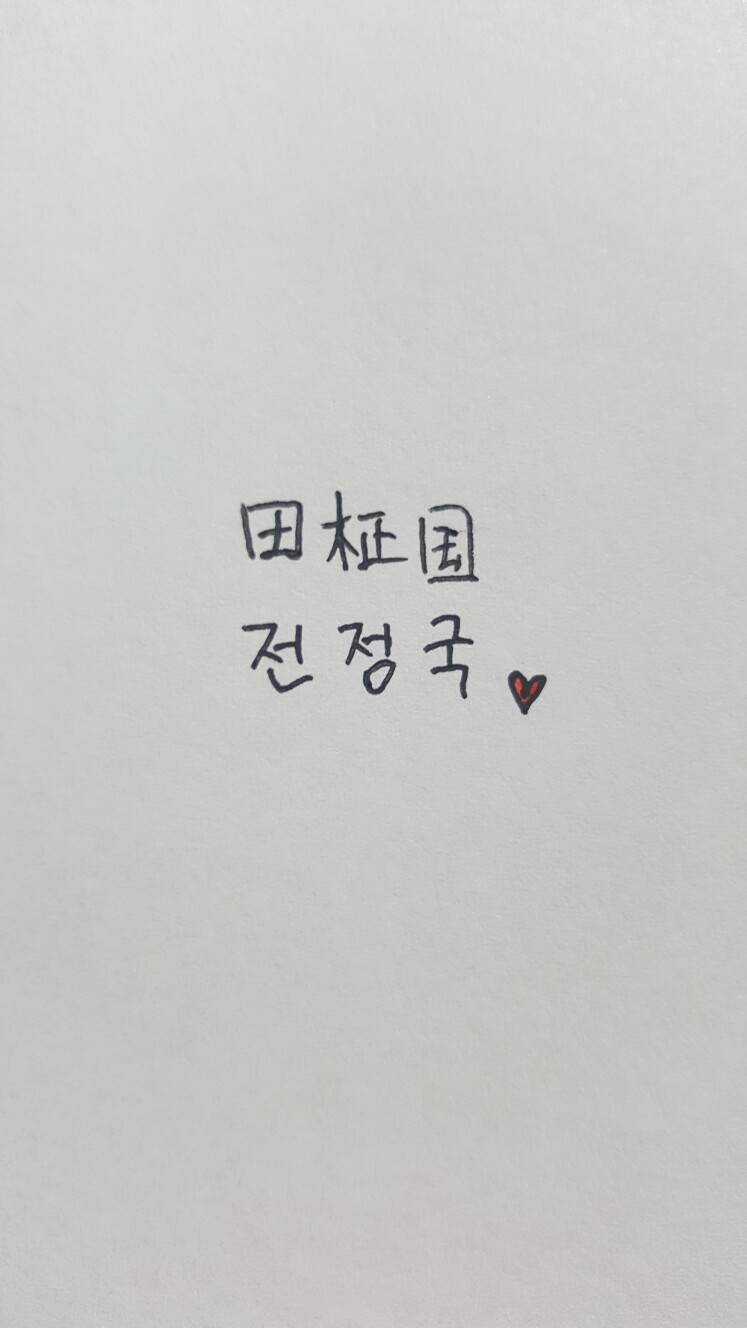 田柾国
전정국